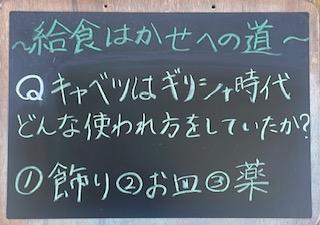 ~給食はかせへの道~
Qキャベツはギリシャ時代
どんな使われ方をしていたか?
①飾り②お皿③薬